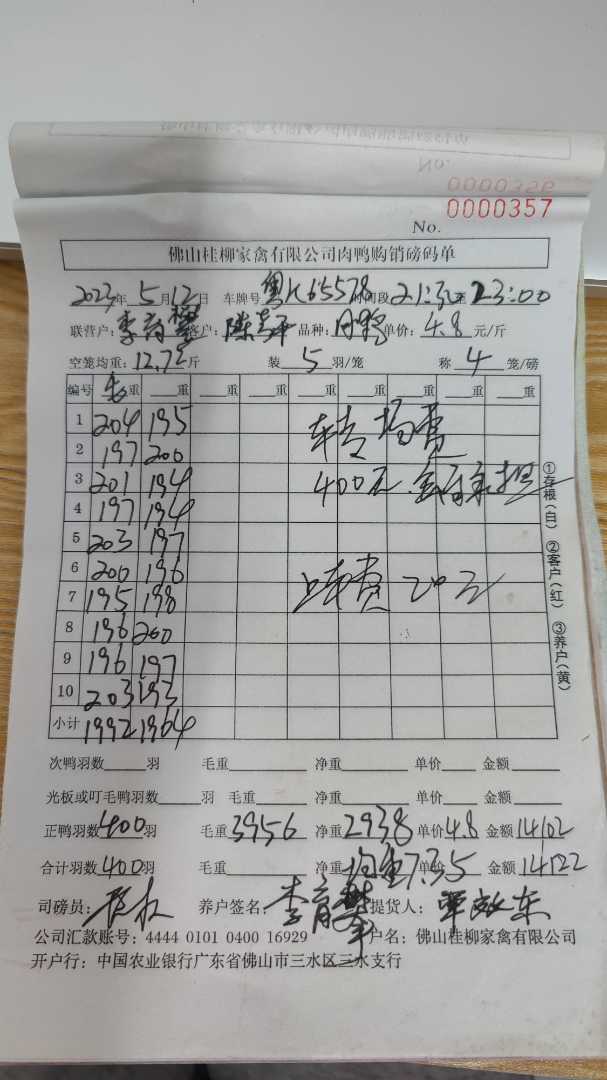 0000357
No.
佛山桂柳家禽有限公司肉鸭购销磅码单
2023年5月12日 车牌号 粤 65578 时间段 21:30至23:00
联营户: 李育 客户: 陈 品种: 单价: 4.8 元/斤
空笼均重: 12.75斤 装 5 羽/笼 称 4 笼/磅
编号 毛重 重 重 重 重 重 重 重
1 204 195
2 197 200
3 201 194
4 197 194
5 203 197
6 200 196
7 195 198
8 196 200
9 196 197
10 203 193
小计 1992 1964
转场费
400元
上车费 20元
①存根(白) ②客户(红) ③养户(黄)
次鸭羽数 羽 毛重 净重 单价 金额
光板或叮毛鸭羽数 羽 毛重 净重 单价 金额
正鸭羽数 400 羽 毛重 3956 净重 2938 单价 4.8 金额 14102
合计羽数 400 羽 毛重 净重 均重7.35 单价 金额 14122
司磅员: 养户签名: 李育 提货人: 覃 东
公司汇款账号: 4444 0101 0400 16929 户名: 佛山桂柳家禽有限公司
开户行: 中国农业银行广东省佛山市三水区三水支行